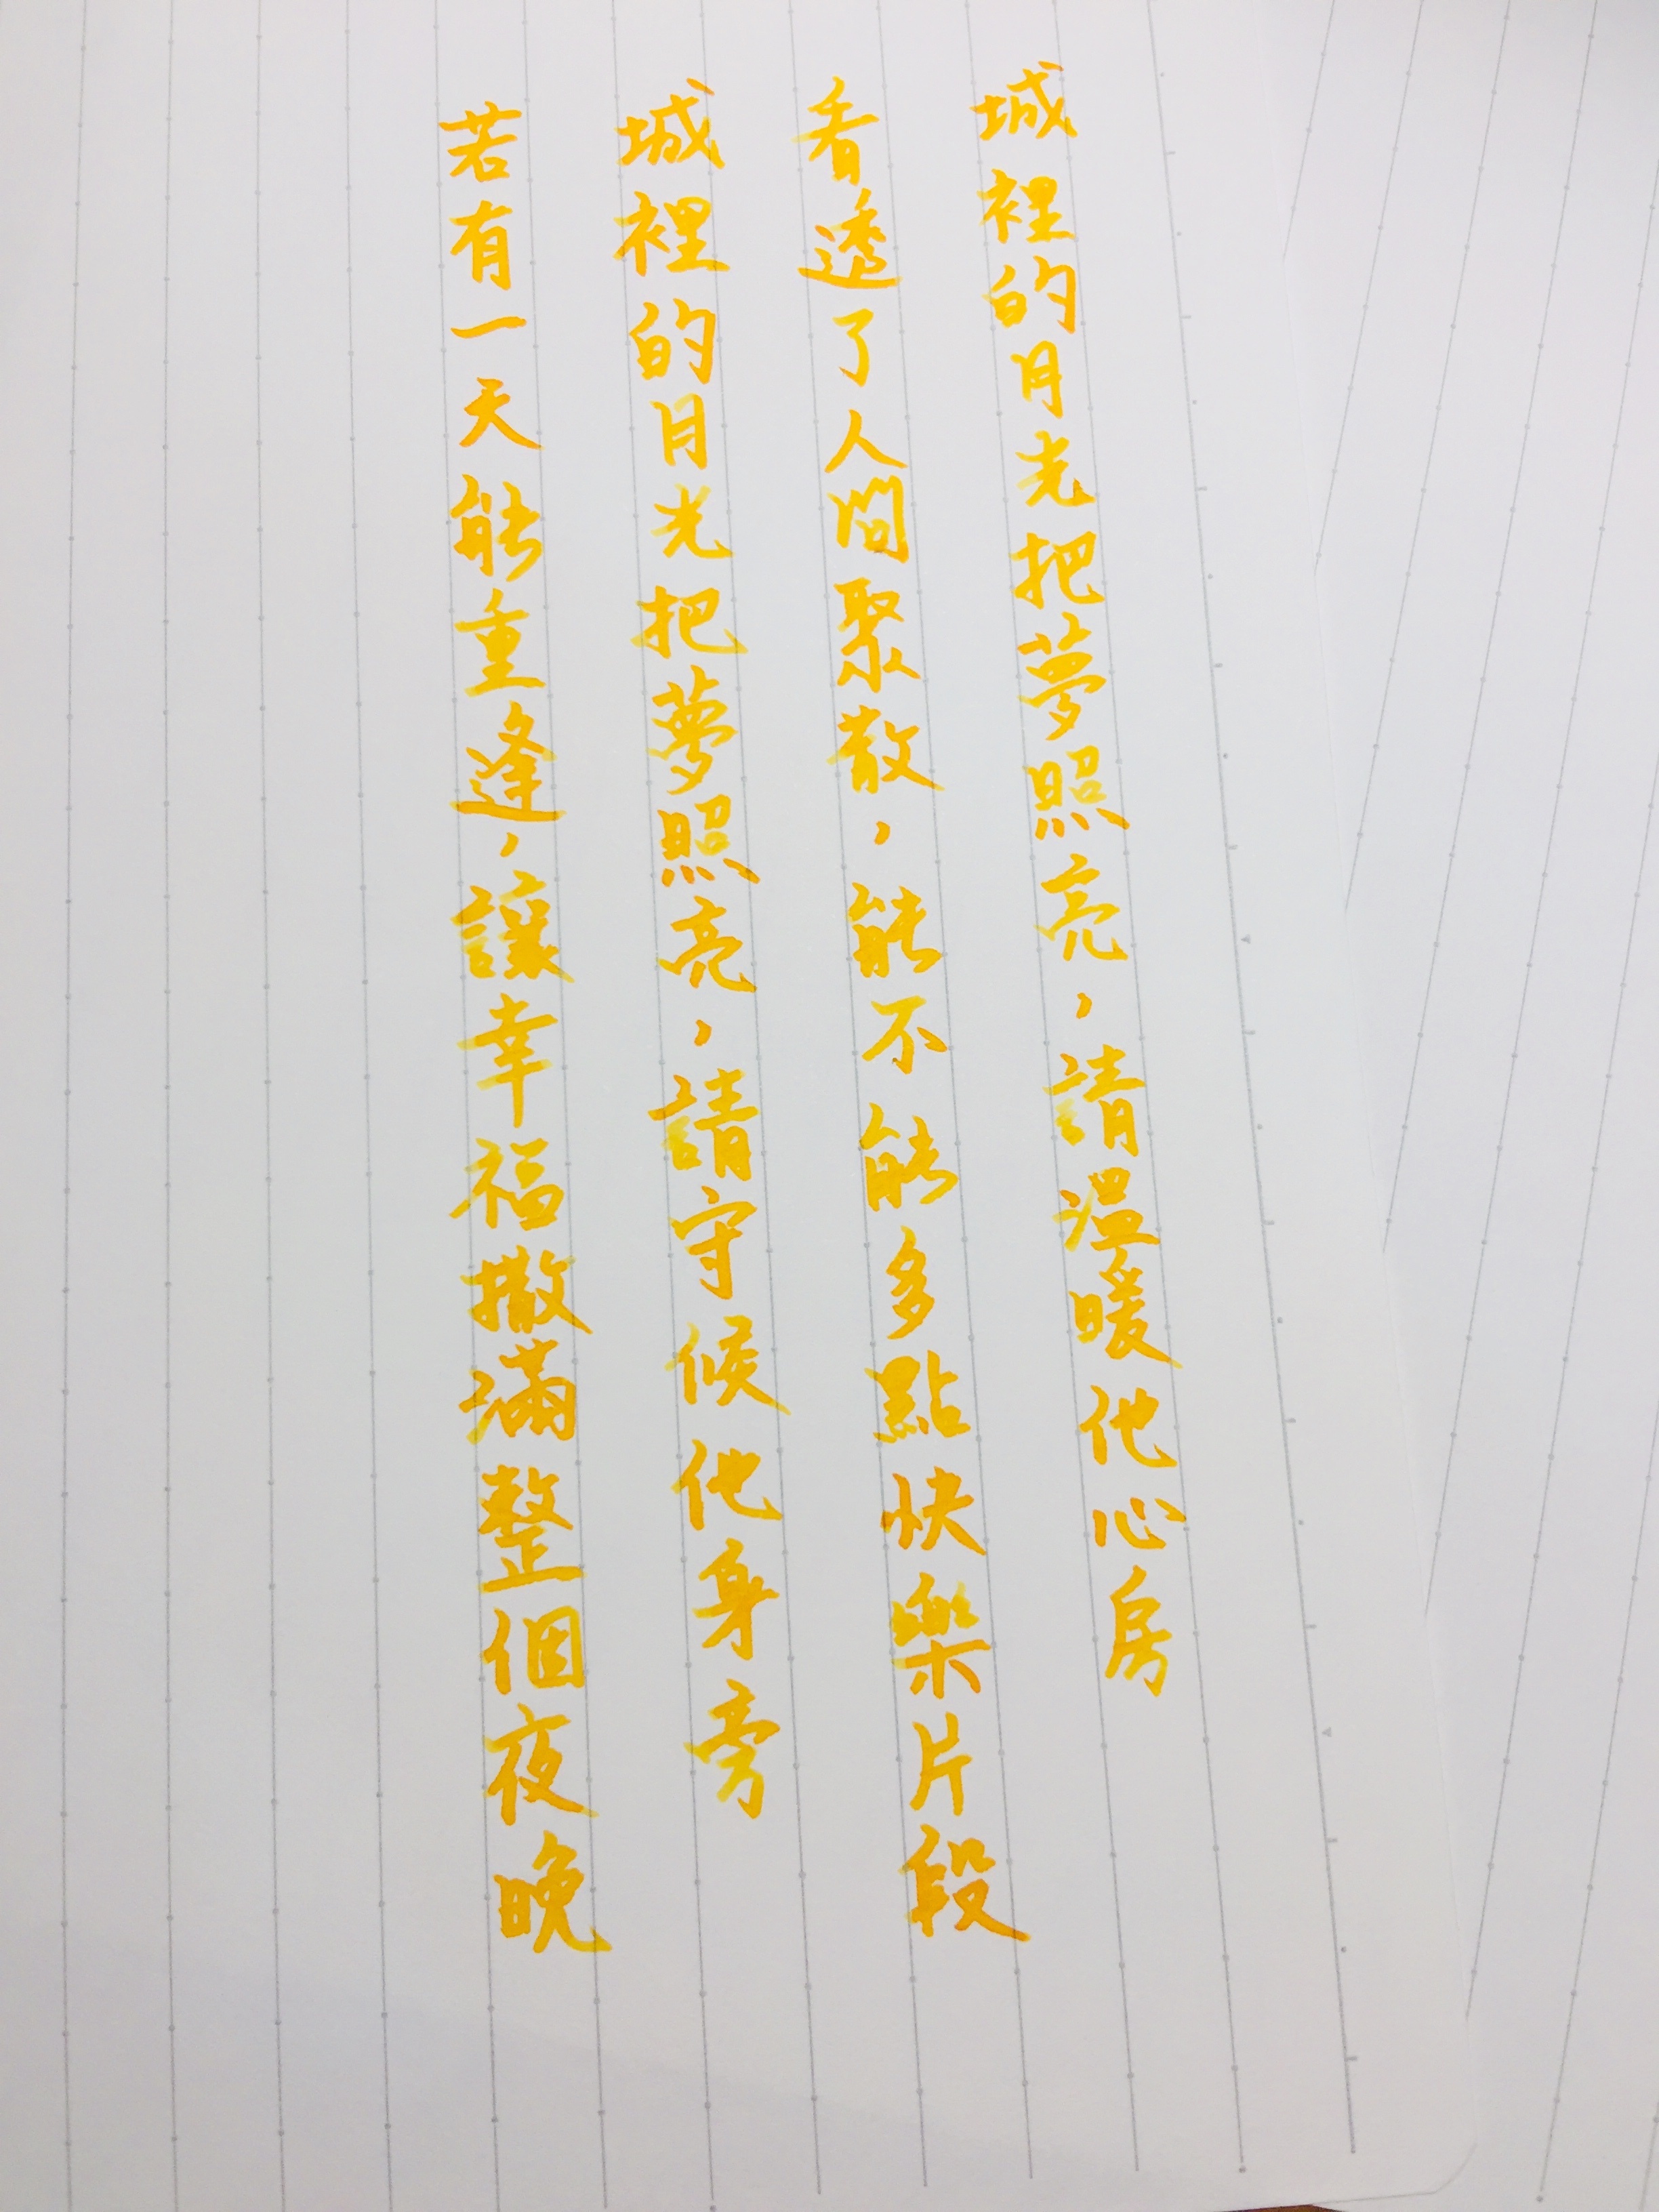 城裡的月光把夢照亮，請溫暖他心房
看透了人間聚散，能不能多點快樂片段
城裡的月光把夢照亮，請守候他身旁
若有一天能重逢，讓幸福撒滿整個夜晚